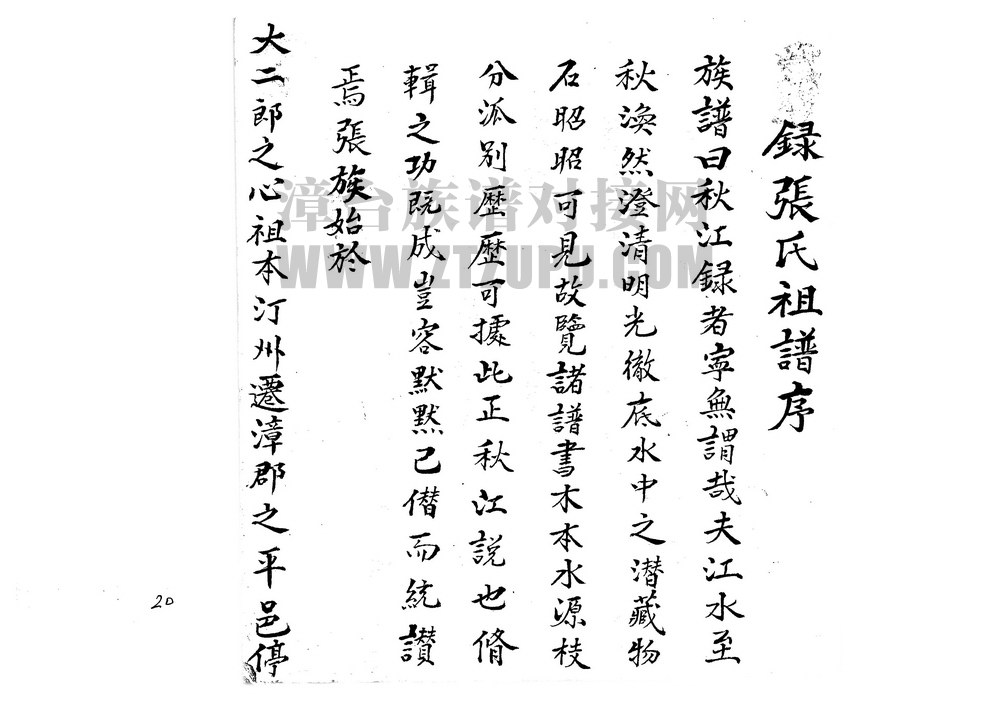 録張氏祖譜序
族譜曰秋江録者寧無謂哉夫江水至
秋渙然澄清明光徹底水中之潜藏物
石昭昭可見故覽諸譜書木本水源枝
分泒別歷歷可據此正秋江説也脩
輯之功既成豈容默默已僣而統讃
焉張族始於
大二郎之心祖本汀州遷漳郡之平邑停
漳台族谱对接网
WWW.ZTZUPU.COM
20